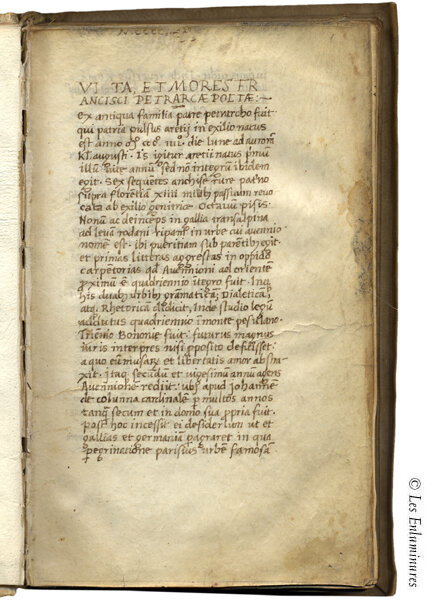 VITA, ET MORES FR
ANCISCI PETRARCÆ POETÆ:
Ex antiqua familia patre petrarcho fuit
qui patria pulsus aretij in exilio natus
est anno die lune ad auroram
Kl augusti. Is igitur aretii natus pmũ
illũ sue annũ sed nõ integrũ ibidem
egit. Sex sequẽtes anchise rure paterno
supra florẽtiã xiiii milibꝫ passuum revo
cata ab exilio genitrice Octauũ pisis.
Nonũ ac deinceps in gallia transalpina
ad leuã rodani ripam in urbe cui auennio
nomẽ est. ibi pueritiam sub parẽtibꝫ egit
et primas litteras agressas in oppido
carpẽtorias qd Auennioni ad orientẽ
proximũ ẽ quadriennio itegro fuit. Inqꝫ
his duabꝫ urbibꝫ grãmaticã, Dialeticã,
atqꝫ Rhetoricã didicit, Inde studio legũ
adductus quadriennio ĩ monte pesulano.
Triẽnio Bononie fuit: futurus magnus
iuris interpres nisi pposito destitisset:
a quo eũ musarꝫ et libertatis amor abstra
xit. itaqꝫ secũdũ et vigesimũ annũ agens
Auenione redijt: ubi apud iohannẽ
de colunna cardinalẽ p multos annos
tanqꝫ secum et in domo sua ppria fuit.
Post hoc incessit ei desideriũ ut et
gallias et germaniã pagraret in qua
pegrinatione parisius urbẽ famosã
© Les Enluminures